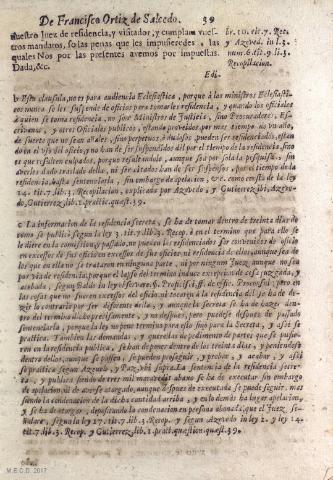 De Francisco Ortiz de Salcedo. 39
nuestro Juez de residencia, y visitador, y cumplan vues-
tros mandatos, so las penas que les impusieredes, las
quales Nos por las presentes avemos por impuestas.
Dada, &c.
br. 10. tit. 7. Rec.
y Azeved. in l. 3.
num. 6. tit. 9. li. 3.
Recopilacion.
Edi-
b Esta clausula, no es para audiencia Eclesiastica, porque à los ministros Eclesiasti-
cos nunca se les suspende de oficios para tomarles residencia, y quando los oficiales
à quien se toma residencia, no son Ministros de Justicia, sino Procuradores, Es-
crivanos, y otros Oficiales publicos, estando proveidos por mas tiempo de un año,
de suerte que no sean añales, sino perpetuos, à vitalicios pueden ser residenciados, estan
do en el uso del oficio, y no han de ser suspendidos dèl por el tiempo de la residencia, sino
es que resulten culpados, porque resultandoles, aunque sea por sola la pesquisa, sin
averles dado traslado della, ni ser citados han de ser suspensos, por el tiempo de la
residencia, hasta sentenciarla, sin embargo de apelacion, &c. como consta de la ley
14. tit. 7. lib. 3. Recopilacion, explicado por Azevedo, y Gutierrez, ibi, Azeve-
do, Gutierrez, lib. 1. practic. quæst. 39.
c La informacion de la residencia secreta, se ha de tomar dentro de treinta dias de
como se publicò segun l. ley 3. tit. 7. lib. 3. Recop. ò en el termino que para ello se
le diere en la comission, y passado, no pueden los residenciados ser convenidos de oficio
en excessos de sus oficios ni residencia de ellos, aunque sea por
los que en ello no se trataron en ninguna parte, ni por ningun Juez, aunque no sea
por via de residencia, porque el lapso del termino induce excepcion de cosa juzgada, y
acabada, segun Baldo in ley observare §. Proficisci. ff. de offic. Proconsul. pero en
las cosas que no fueren excessos del oficio, ni tocaren à la residencia del se ha de de-
zir lo contrario por ser diferente della, y aunque la secreta se ha de hazer den-
tro del termino dicho precissamente, y no despues, pero puedese despues de passado
sentenciarla, porque la ley no pone termino para ello sino para la secreta, y assi se
practica. Tambien las demandas, y querellas de pedimento de partes que se pusie-
ren en la residencia publica, se han de poner dentro de los treinta dias, y poniendose
dentro dellos, aunque se passen, se pueden proseguir, y probar, y acabar, y assi
se practica segun Azevedo, y Paz, ubi supra. La sentencia de la residencia secre-
ta, y publica siendo de tres mil maravedis abaxo se ha de executar sin embargo
de apelacion ni de averse otorgado, aunque despues de executada se puede seguir, mas
siendo la condenacion de la dicha cantidad arriba, y en lo demàs ha lugar apelacion,
y se ha de otorgar, depositando la condenacion en persona abonada, que el Juez se-
ñalare, segun la ley 17. tit. 7. lib. 3. Recop. y segun Azevedo in ley 2. y ley 14.
tit. 7. lib. 3. Recop. y Gutierrez, lib. 1. pract. quæstion. quæst. 39.
M.E.C.D. 2017